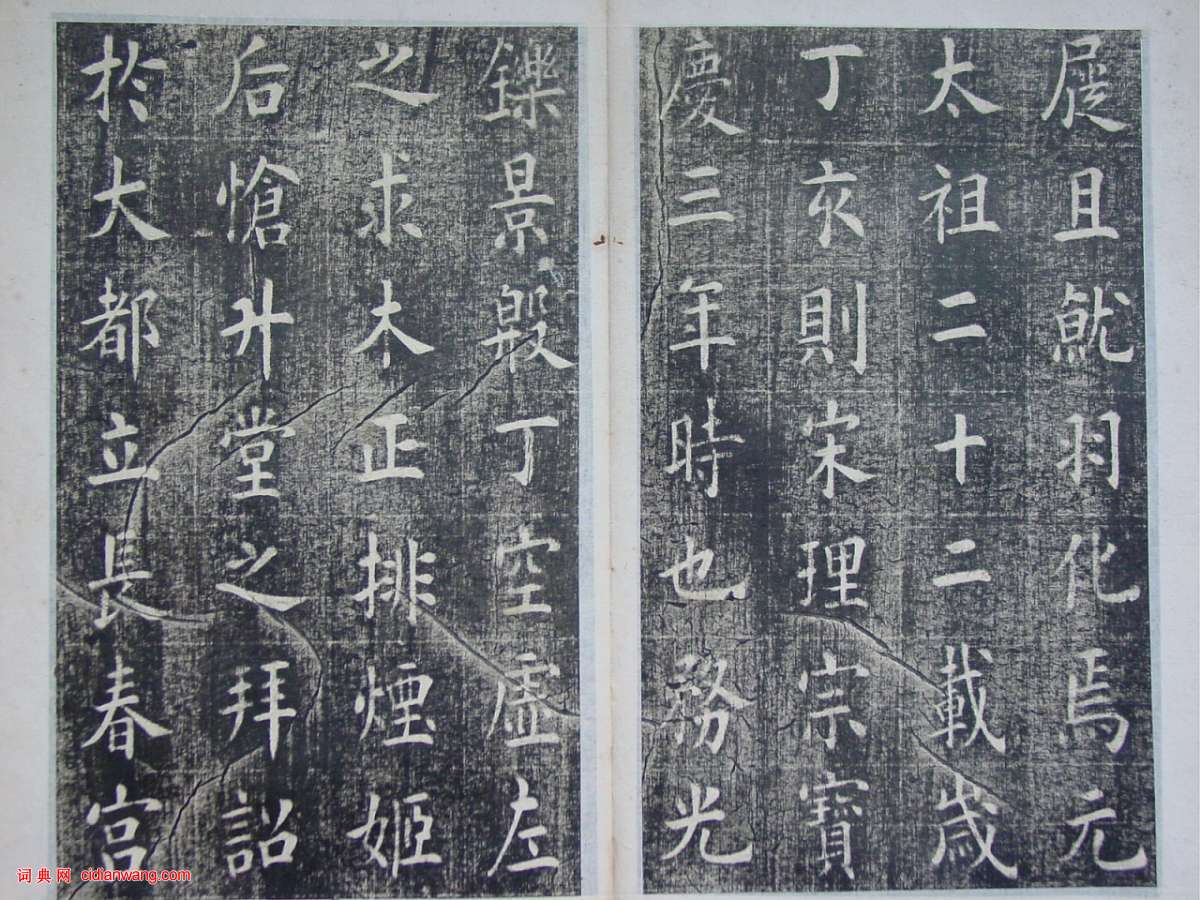 屣且觥羽化焉元
太祖二十二載歲
丁亥則宋理宗寶
慶三年時也務光
鑠景毀丁空虛左
之求木正排煙姬
后愴升堂之拜詔
於大都立長春宮
词典网 cidianwang.com